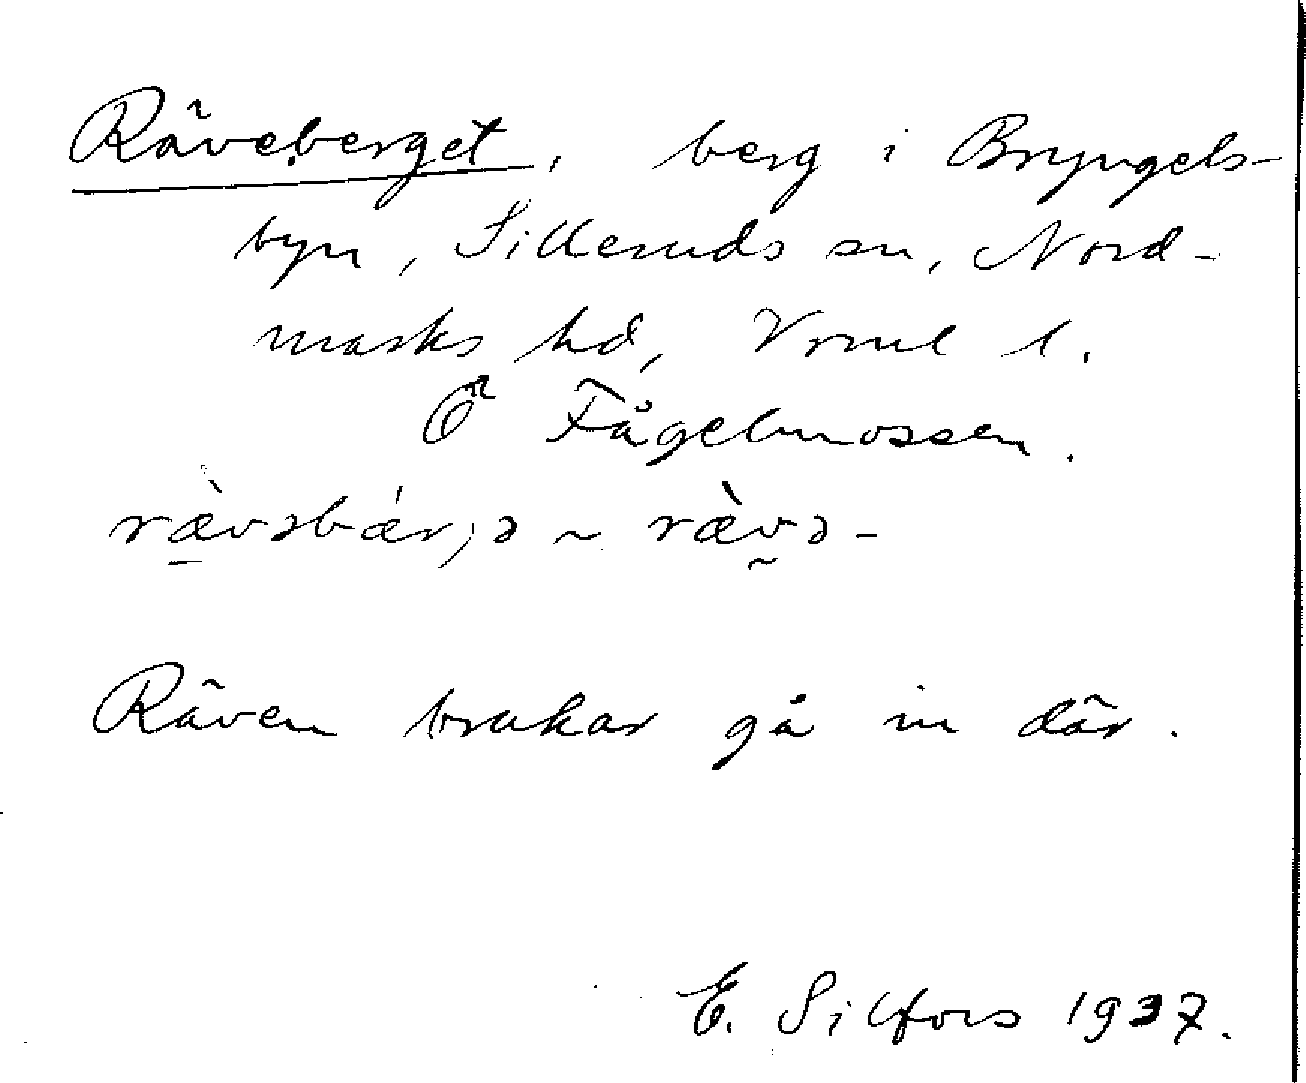 Räveberget, berg i Bryngels-
byn, Silleruds sn, Nord-
marks hd, Vrml l.
Ö Fågelmossen.
ræ̀vəbǽrjə ~ ræ̀və-
Räven brukar gå in där.
E. Silfors 1937.